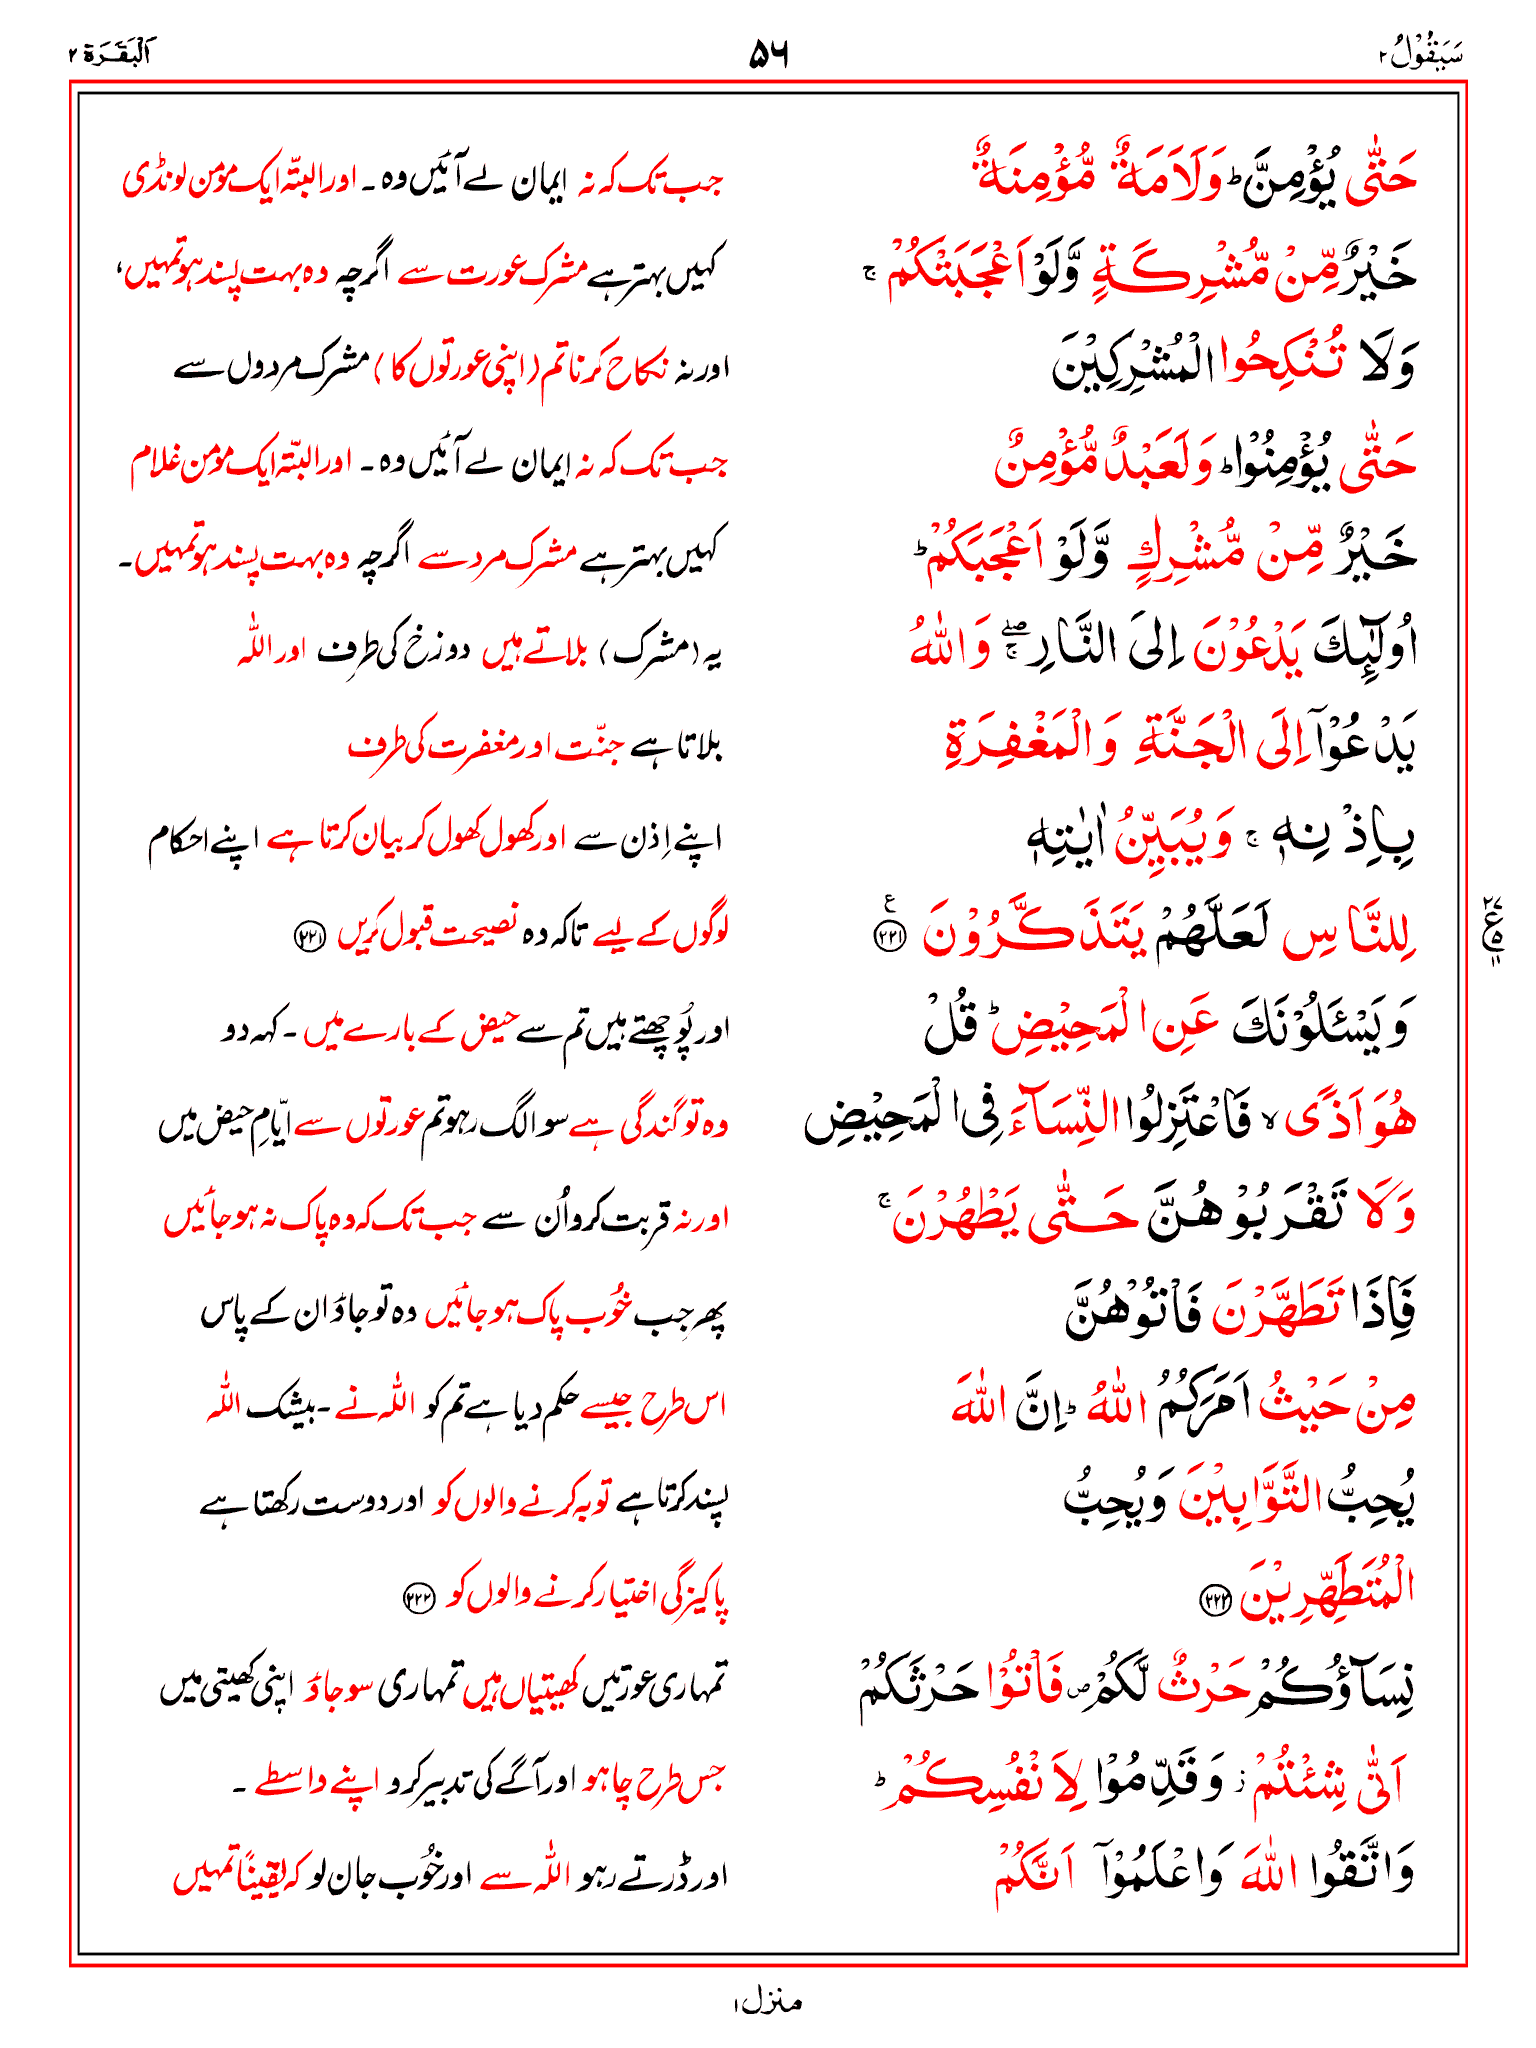 سَيَقُوْلُ ٢
۵۶
اَلْبَقَرَة ٢
حَتّٰى يُؤْمِنَّ ؕ وَلَاَمَةٌ مُّؤْمِنَةٌ
جب تک کہ نہ ایمان لے آئیں وہ۔ اور البتّہ ایک مومن لونڈی
خَيْرٌ مِّنْ مُّشْرِكَةٍ وَّلَوْ اَعْجَبَتْكُمْ ۚ
کہیں بہتر ہے مشرک عورت سے اگرچہ وہ بہت پسند ہو تمہیں،
وَلَا تُنْكِحُوا الْمُشْرِكِيْنَ
اور نہ نکاح کرنا تم (اپنی عورتوں کا) مشرک مردوں سے
حَتّٰى يُؤْمِنُوْا ؕ وَلَعَبْدٌ مُّؤْمِنٌ
جب تک کہ نہ ایمان لے آئیں وہ۔ اور البتّہ ایک مومن غلام
خَيْرٌ مِّنْ مُّشْرِكٍ وَّلَوْ اَعْجَبَكُمْ ؕ
کہیں بہتر ہے مشرک مرد سے اگرچہ وہ بہت پسند ہو تمہیں۔
اُولٰٓئِكَ يَدْعُوْنَ اِلَى النَّارِ ۖۚ وَاللّٰهُ
یہ (مشرک) بلاتے ہیں دوزخ کی طرف اور اللّٰہ
يَدْعُوْٓا اِلَى الْجَنَّةِ وَالْمَغْفِرَةِ
بلاتا ہے جنّت اور مغفرت کی طرف
بِاِذْنِهٖ ۚ وَيُبَيِّنُ اٰيٰتِهٖ
اپنے اِذن سے اور کھول کھول کر بیان کرتا ہے اپنے احکام
لِلنَّاسِ لَعَلَّهُمْ يَتَذَكَّرُوْنَ ﴿۲۲۱﴾ ع
لوگوں کے لیے تاکہ وہ نصیحت قبول کریں ﴿۲۲۱﴾
٢٧ ع ۵ ١١
وَيَسْـَٔلُوْنَكَ عَنِ الْمَحِيْضِ ؕ قُلْ
اور پُوچھتے ہیں تم سے حیض کے بارے میں۔ کہہ دو
هُوَ اَذًى ۙ فَاعْتَزِلُوا النِّسَآءَ فِى الْمَحِيْضِ
وہ تو گندگی ہے سو الگ رہو تم عورتوں سے ایّامِ حیض میں
وَلَا تَقْرَبُوْهُنَّ حَتّٰى يَطْهُرْنَ ۚ
اور نہ قربت کرو اُن سے جب تک کہ وہ پاک نہ ہو جائیں
فَاِذَا تَطَهَّرْنَ فَاْتُوْهُنَّ
پھر جب خُوب پاک ہو جائیں وہ تو جاؤ ان کے پاس
مِنْ حَيْثُ اَمَرَكُمُ اللّٰهُ ؕ اِنَّ اللّٰهَ
اس طرح جیسے حکم دیا ہے تم کو اللّٰہ نے۔ بیشک اللّٰہ
يُحِبُّ التَّوَّابِيْنَ وَيُحِبُّ
پسند کرتا ہے توبہ کرنے والوں کو اور دوست رکھتا ہے
الْمُتَطَهِّرِيْنَ ﴿۲۲۲﴾
پاکیزگی اختیار کرنے والوں کو ﴿۲۲۲﴾
نِسَآؤُكُمْ حَرْثٌ لَّكُمْ ص فَاْتُوْا حَرْثَكُمْ
تمہاری عورتیں کھیتیاں ہیں تمہاری سو جاؤ اپنی کھیتی میں
اَنّٰى شِئْتُمْ ز وَقَدِّمُوْا لِاَنْفُسِكُمْ ؕ
جس طرح چاہو اور آگے کی تدبیر کرو اپنے واسطے۔
وَاتَّقُوا اللّٰهَ وَاعْلَمُوْٓا اَنَّكُمْ
اور ڈرتے رہو اللّٰہ سے اور خُوب جان لو کہ یقیناً تمہیں
منزل ١